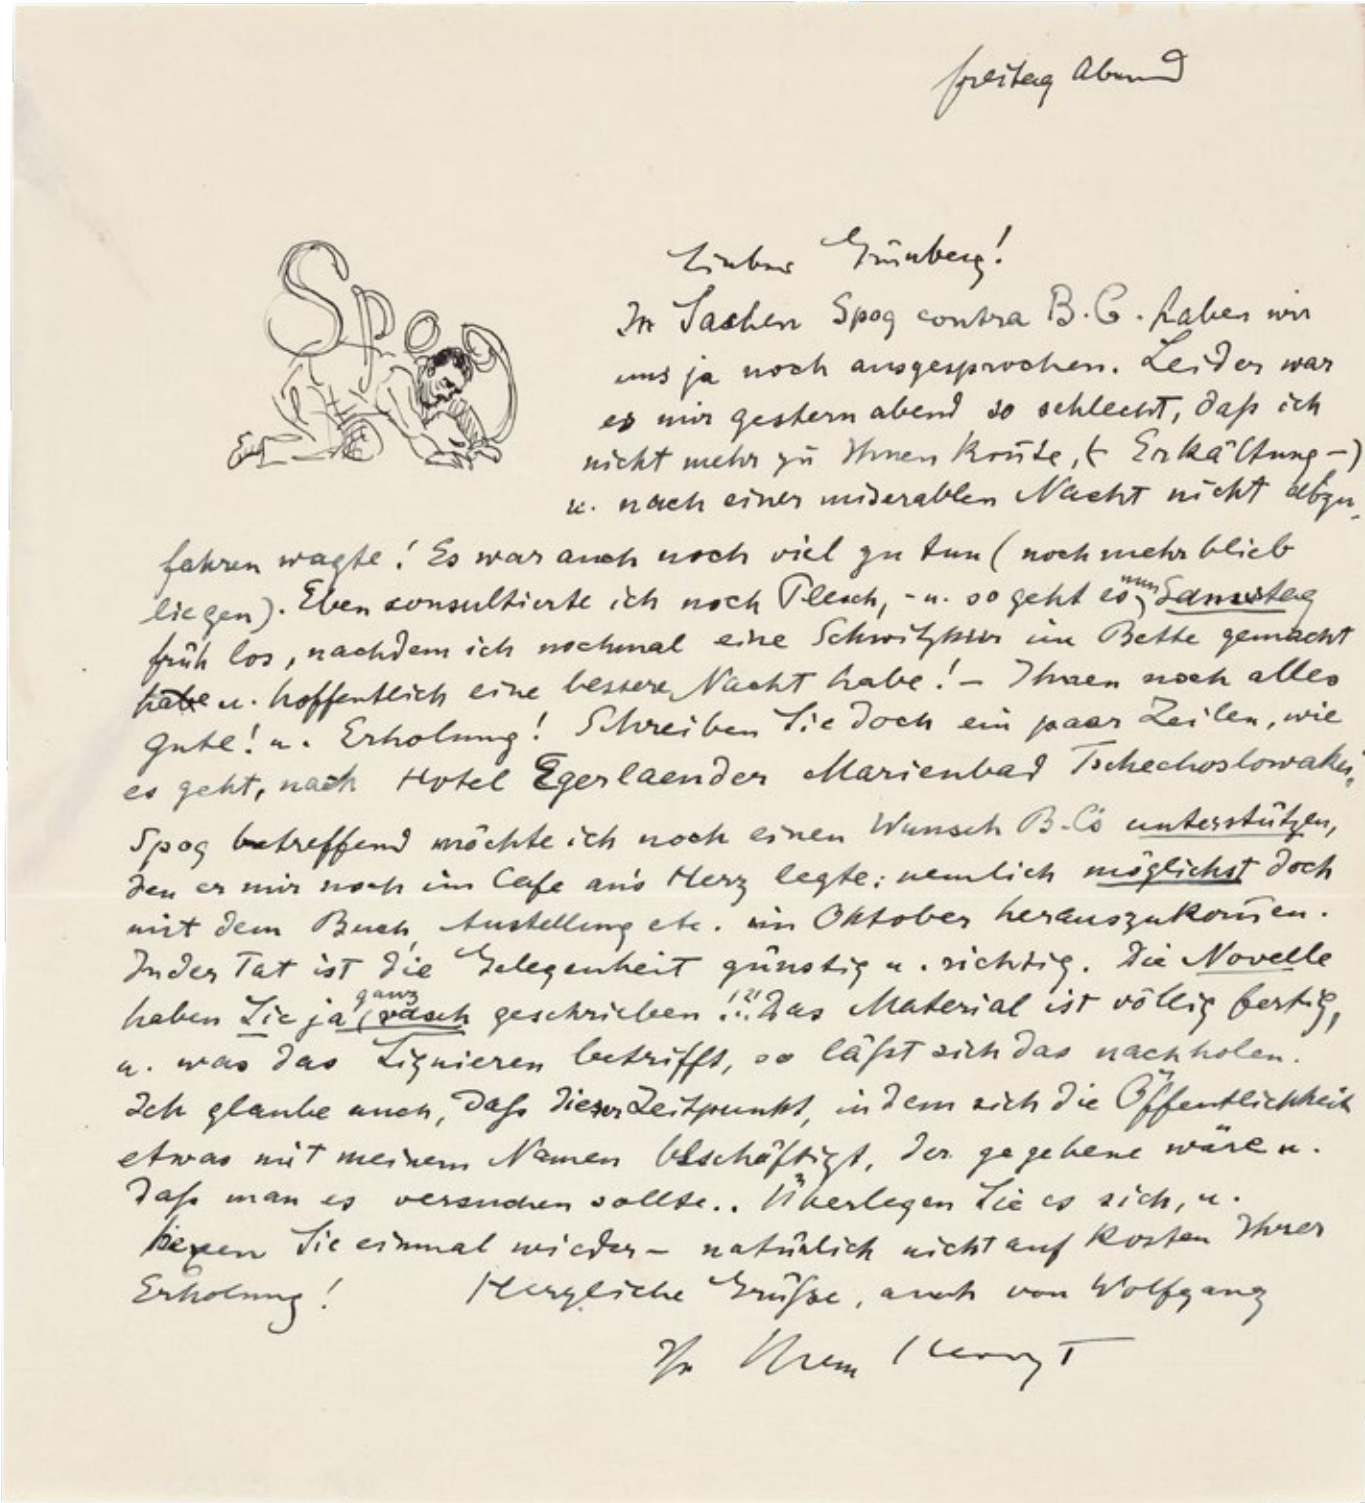 Freitag Abend
Spog
Lieber Grünberg!
In Sachen Spog contra B.C. haben wir
uns ja noch ausgesprochen. Leider war
es mir gestern abend so schlecht, daß ich
nicht mehr zu Ihnen kon̄te, (- Erkältung -)
u. nach einer miserablen Nacht nicht abzu-
fahren wagte! Es war auch noch viel zu tun (noch mehr blieb
liegen). Eben consultierte ich noch Plesch, - u. so geht es nun Samstag
früh los, nachdem ich nochmal eine Schwitzkur im Bette gemacht
habe u. hoffentlich eine bessere Nacht habe! - Ihnen noch alles
gute! u. Erholung! Schreiben Sie doch ein paar Zeilen, wie
es geht, nach Hotel Egerlaender Marienbad Tschechoslowakei.
Spog betreffend möchte ich noch einen Wunsch B.C's unterstützen,
den er mir noch im Cafe ans Herz legte: nemlich möglichst doch
mit dem Buch, Austellung etc. im Oktober herauszukom̄en.
In der Tat ist die Gelegenheit günstig u. richtig. Die Novelle
haben Sie ja ganz rasch geschrieben!!?! Das Material ist völlig fertig,
u. was das Signieren betrifft, so läßt sich das nachholen.
Ich glaube auch, daß dieser Zeitpunkt, in dem sich die Öffentlichkeit
etwas mit meinem Namen beschäftigt, der gegebene wäre u.
daß man es versuchen sollte.. Überlegen Sie es sich, u.
hexen Sie einmal wieder - natürlich nicht auf Kosten Ihrer
Erholung! Herzliche Grüße, auch von Wolfgang
Ihr